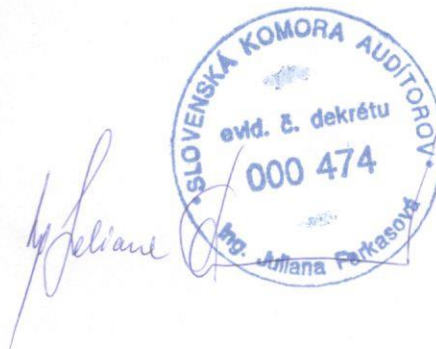 SLOVENSKÁ KOMORA AUDÍTOROV
evid. č. dekrétu
000 474
Ing. Juliana Farkasová